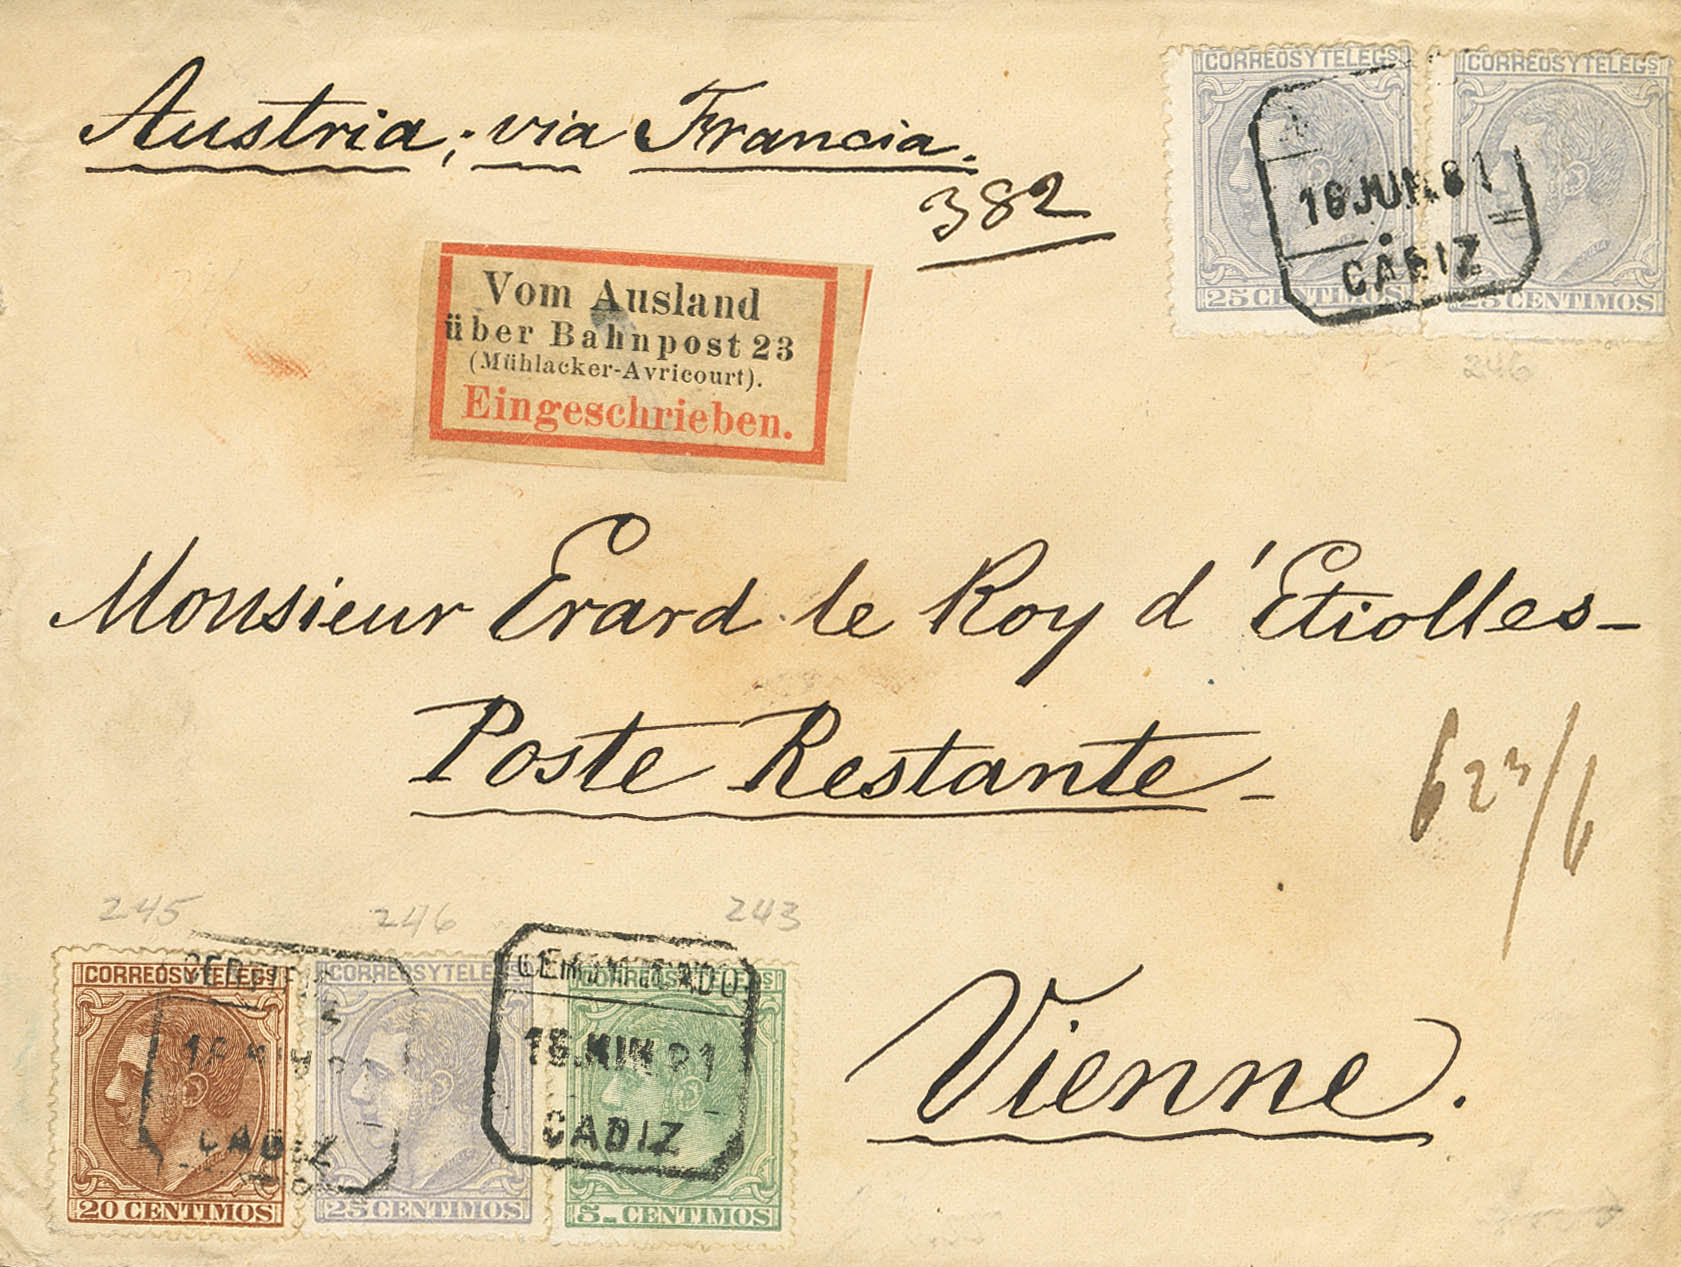 Austria; via Francia.
382
CORREOS Y TELEGS
CORREOS Y TELEGS
16 JUN. 81
CADIZ
25 CENTIMOS
CENTIMOS
246
Vom Ausland
über Bahnpost 23
(Mühlacker-Avricourt).
Eingeschrieben.
Monsieur Erard le Roy d'Etiolles-
Poste Restante-
623/6
Vienne.
245
246
243
CORREOS Y TELEGS
CORREOS Y TELEGS
CERTIFICADO
16 JUN 81
CADIZ
CADIZ
20 CENTIMOS
25 CENTIMOS
5 CENTIMOS